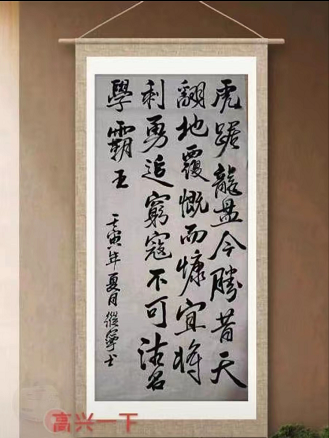 虎踞龍盘今勝昔天
翻地覆慨而慷宜將
剩勇追窮寇不可沽名
學霸王
壬寅年夏月寧书
高兴一下